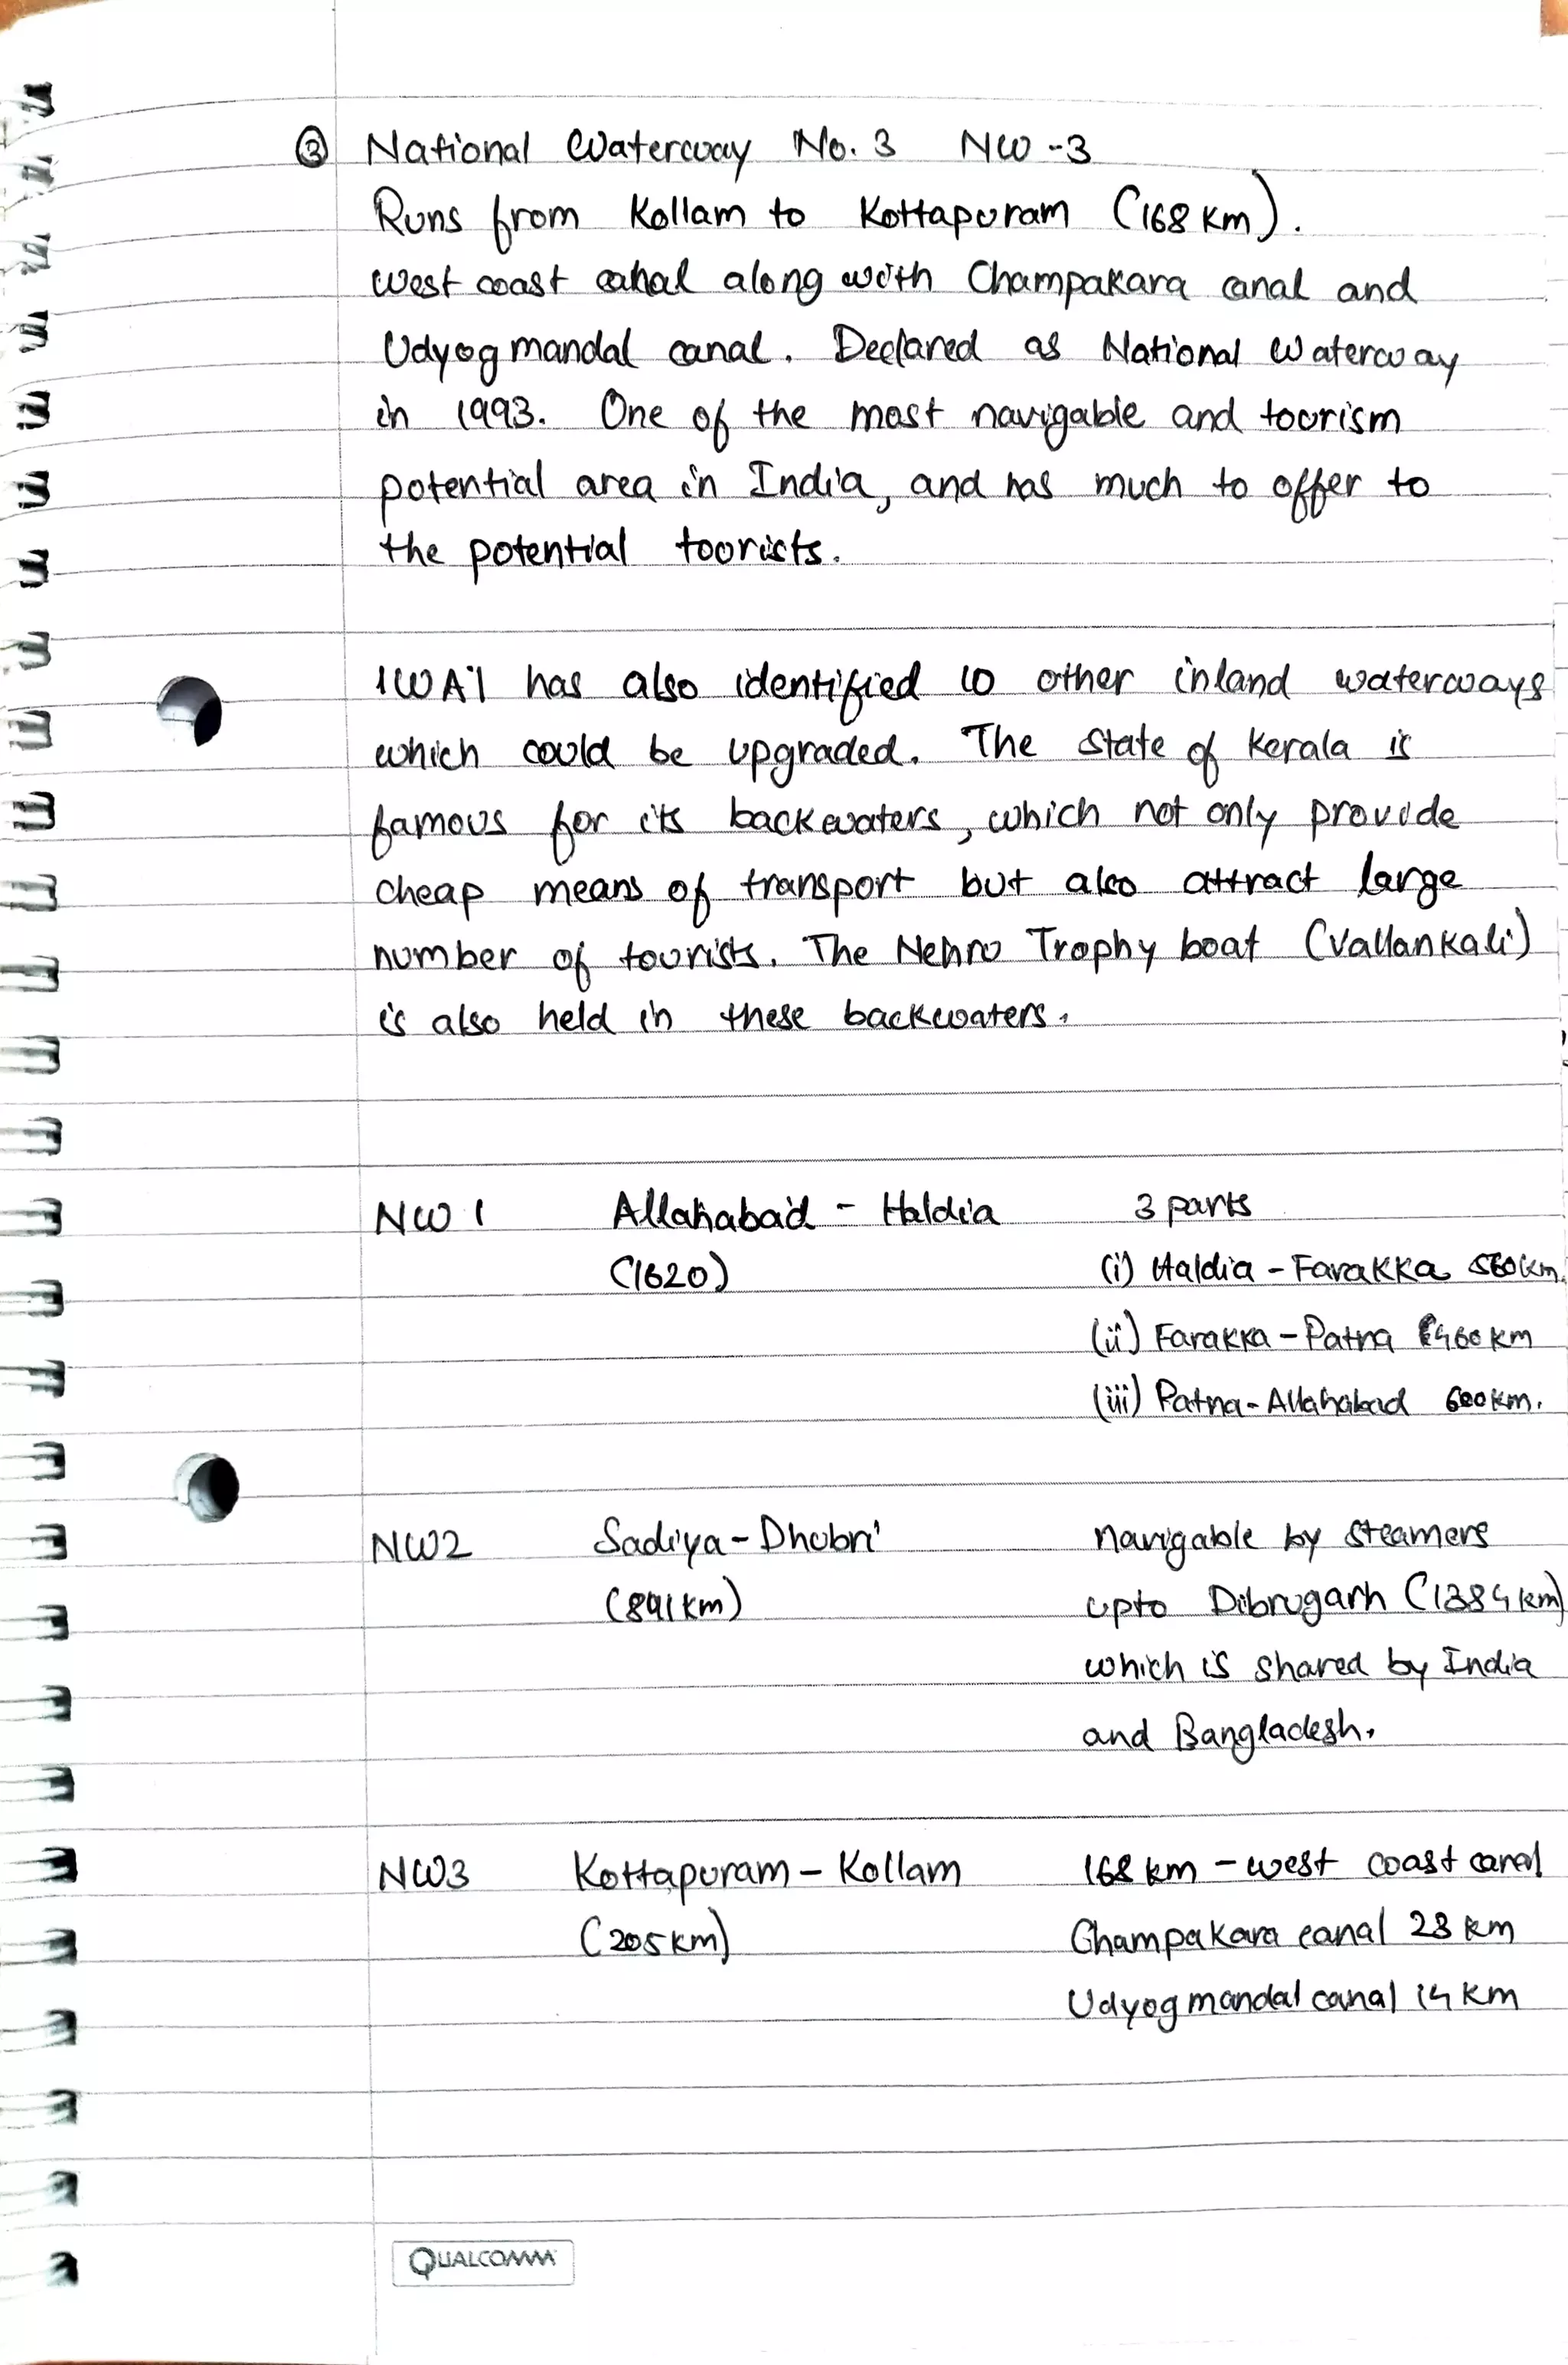 ③ National Waterway No. 3 NW-3
Runs from Kollam to Kottapuram (168 km).
West coast canal along with Champakara canal and
Udyogmandal canal. Declared as National Waterway
in 1993. One of the most navigable and tourism
potential area in India, and has much to offer to
the potential tourists.
IWAI has also identified 10 other inland waterways
which could be upgraded. The state of Kerala is
famous for its backwaters, which not only provide
cheap means of transport but also attract large
number of tourists. The Nehru Trophy boat (Vallankali)
is also held in these backwaters.
NW 1 Allahabad - Haldia 3 parts
(1620) (i) Haldia - Farakka 560 km.
(ii) Farakka - Patna 460 km
(iii) Patna - Allahabad 600 km.
NW2 Sadiya - Dhubri navigable by steamers
(891 km) upto Dibrugarh (1384 km)
which is shared by India
and Bangladesh.
NW3 Kottapuram - Kollam 168 km - west coast canal
(205 km) Champakara canal 23 km
Udyogmandal canal 14 km
QUALCOMM